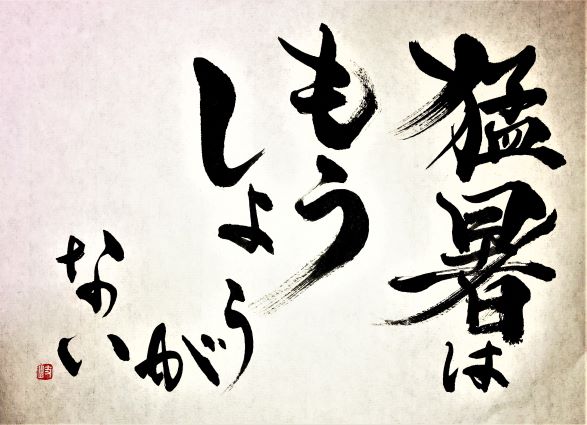 猛暑は
もう
しょうが
ない